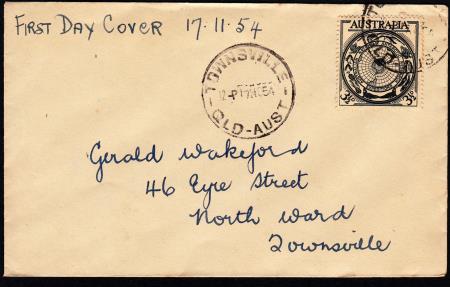 First Day Cover 17.11.54
AUSTRALIA
3½d
TOWNSVILLE
QLD-AUST
Gerald Wakeford
46 Eyre Street
North Ward
Townsville